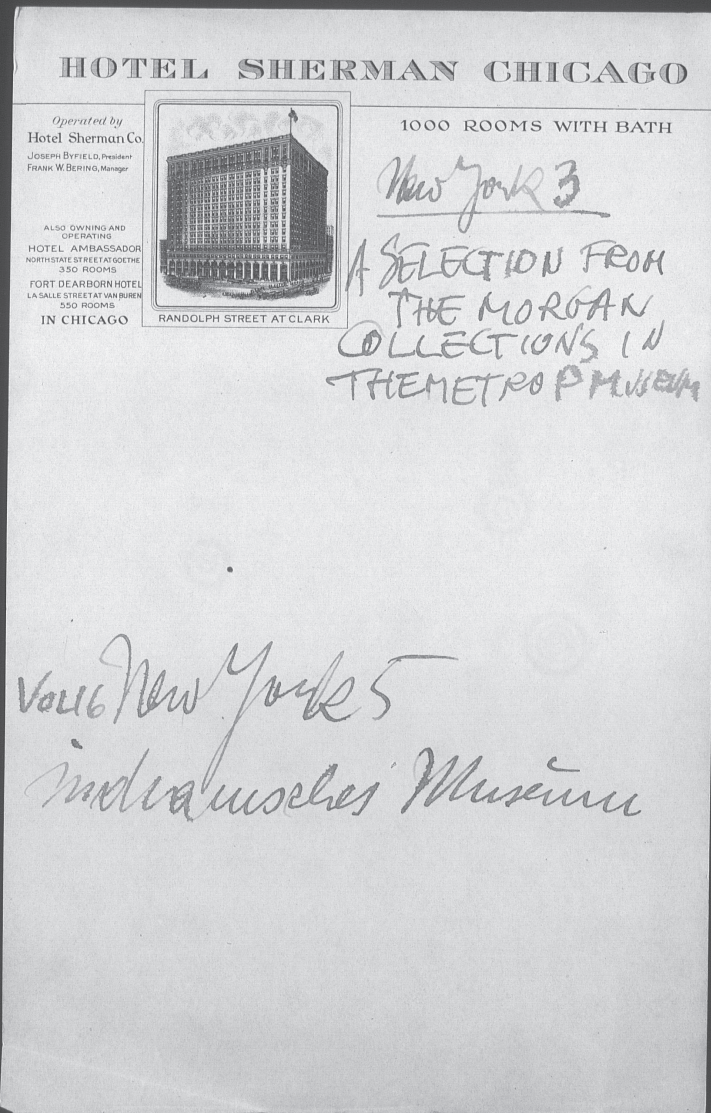 HOTEL SHERMAN CHICAGO
Operated by
Hotel Sherman Co.
JOSEPH BYFIELD, President
FRANK W. BERING, Manager
ALSO OWNING AND
OPERATING
HOTEL AMBASSADOR
NORTH STATE STREET AT GOETHE
350 ROOMS
FORT DEARBORN HOTEL
LA SALLE STREET AT VAN BUREN
550 ROOMS
IN CHICAGO
RANDOLPH STREET AT CLARK
1000 ROOMS WITH BATH
New York 3
A SELECTION FROM
THE MORGAN
COLLECTIONS IN
THE METROP MUSEUM
New York 5
indianisches Museum